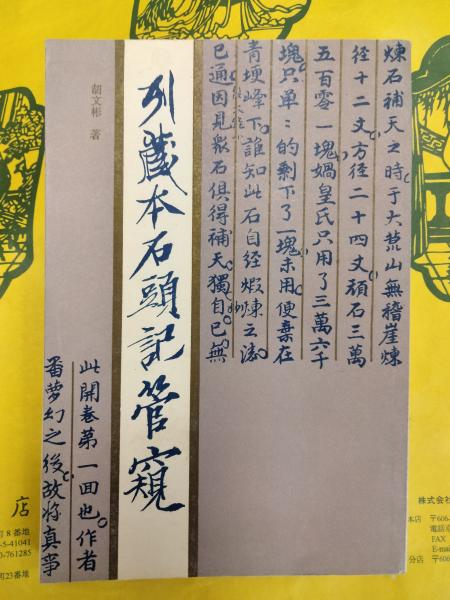 煉石補天之時于大荒山無稽崖煉
徑十二丈方徑二十四丈頑石三萬
五百零一塊媧皇氏只用了三萬六千
塊只单:的剩下了一塊未用便棄在
青埂峰下誰知此石自經煅煉之後
已通因見衆石俱得補天獨自己無
列藏本石頭記管窺
胡文彬 著
此開卷第一回也。作者
番夢幻之後故將真事
店
町8番地
5-41041
0-761285
町23番地
株式会
本店 〒606-
電話
FAX
E-mai
分店 〒606